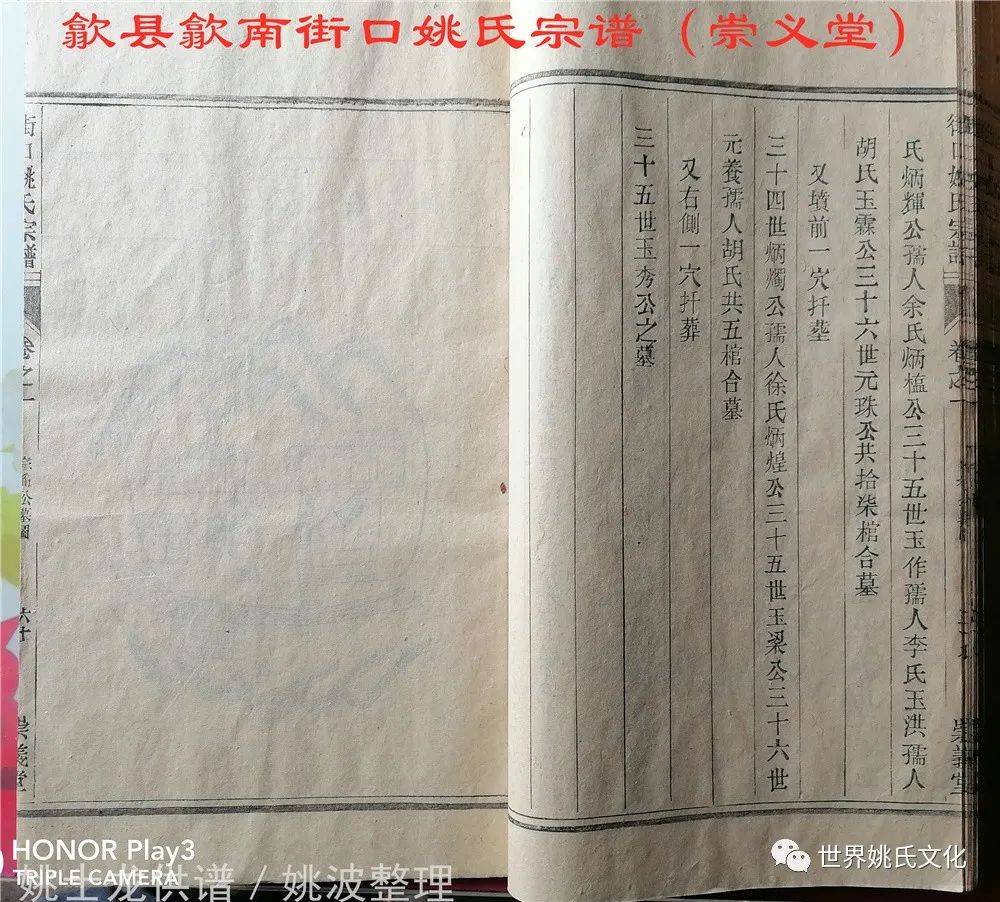 歙县歙南街口姚氏宗谱（崇义堂）
氏炳輝公孺人余氏炳榼公三十五世玉作孺人李氏玉洪孺人
胡氏玉霖公三十六世元珠公共拾柒棺合墓
又墳前一穴扦塟
三十四世炳燭公孺人徐氏炳煌公三十五世玉梁公三十六世
元養孺人胡氏共五棺合墓
又右側一穴扦葬
三十五世玉秀公之墓
街口姚氏宗譜
卷之一
六十
崇義堂
HONOR Play3
TRIPLE CAMERA
姚土龙供谱 / 姚波整理
世界姚氏文化